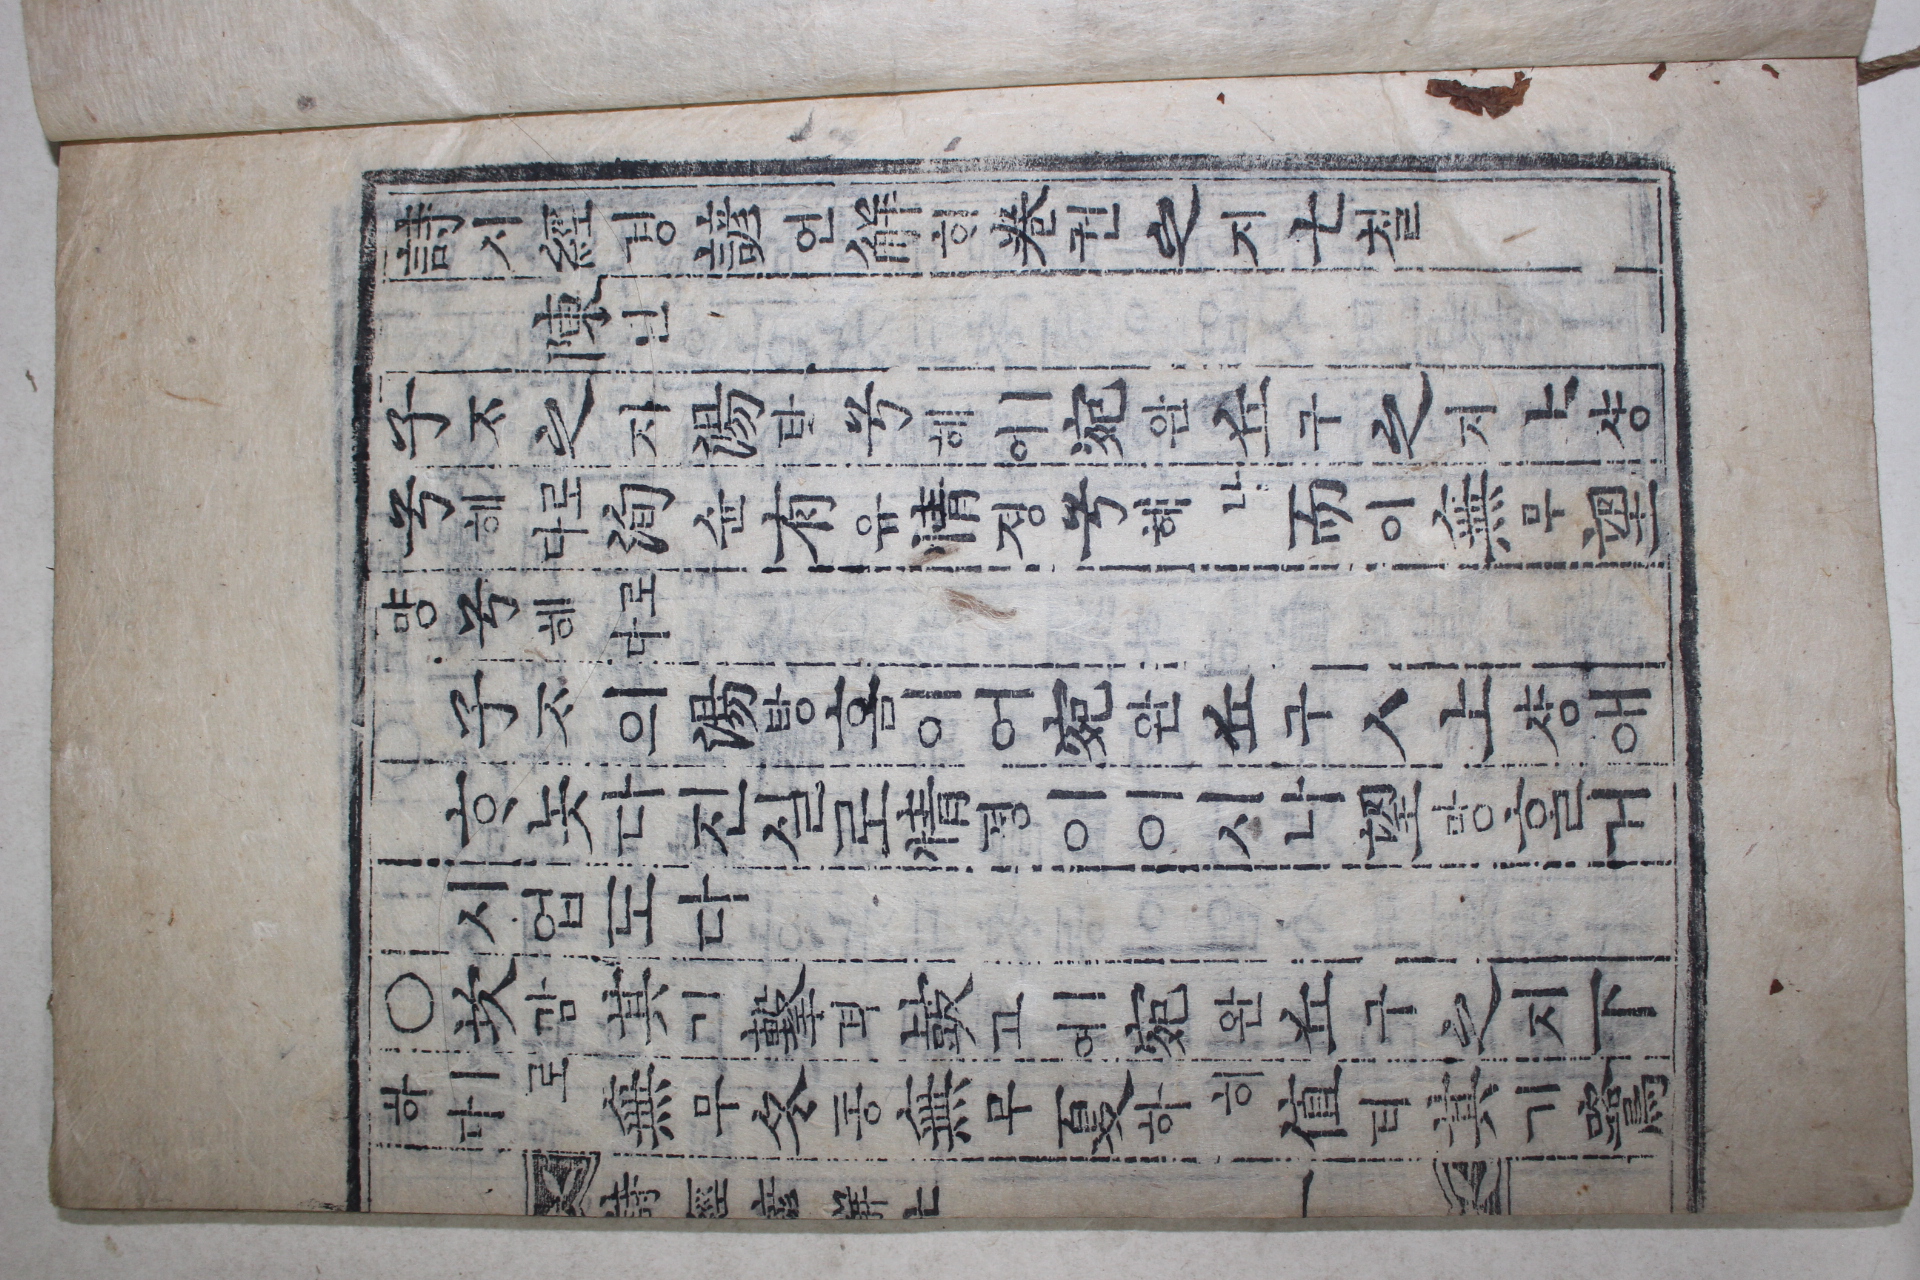 詩시經경諺언解ᄒᆡ卷권之지七칠
陳딘
子ᄌᆞ之지湯탕兮혜ㅣ여宛완丘구之지上샹
兮혜로다洵슌有유情졍兮혜나而이無무望
망兮혜로다
子ᄌᆞ의湯탕홈이여宛완丘구ㅅ上샹애
ᄒᆞ놋다진실로情졍이이시나望망홀꺼
시업도다
○坎감其기擊격鼓고ㅣ여宛완丘구之지下
하ㅣ로다無무冬동無무夏하히値티其기鷺
詩經諺解七 一